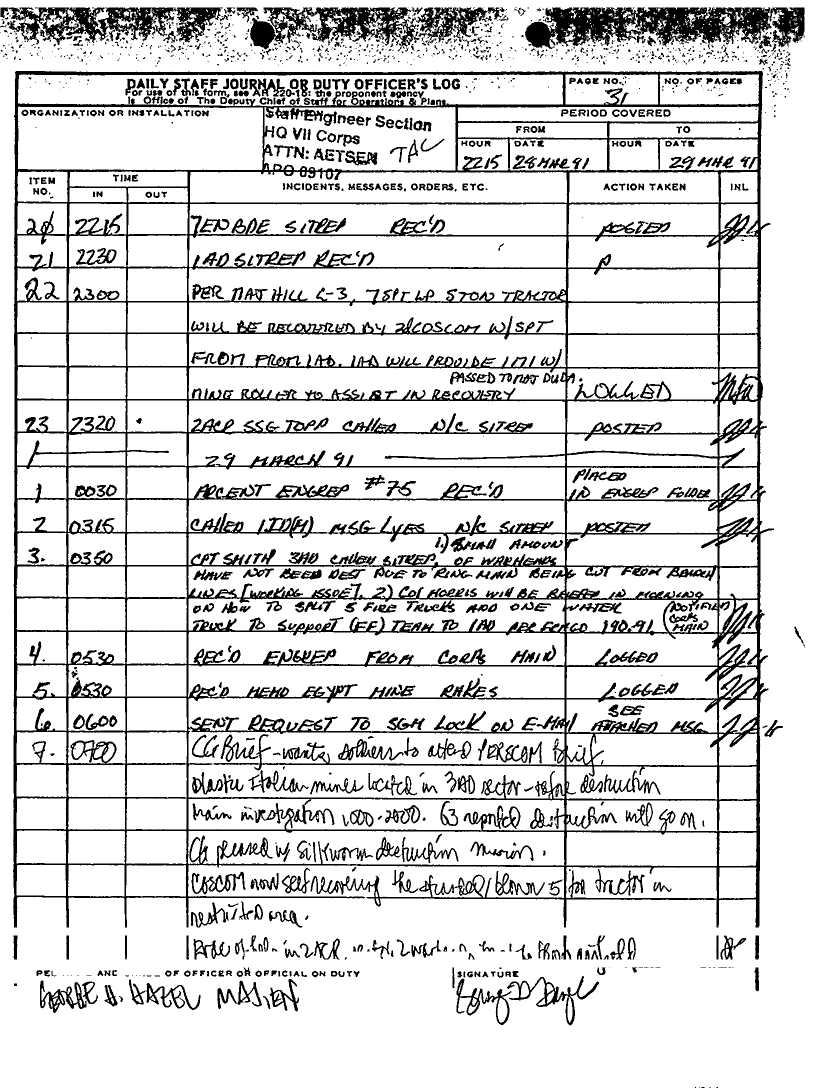 DAILY STAFF JOURNAL OR DUTY OFFICER'S LOG
For use of this form, see AR 220-15; the proponent agency
is Office of The Deputy Chief of Staff for Operations & Plans.
PAGE NO.
31
NO. OF PAGES
ORGANIZATION OR INSTALLATION
Staff Engineer Section
HQ VII Corps
ATTN: AETSEN TAC
APO 09107
PERIOD COVERED
FROM
TO
HOUR
DATE
HOUR
DATE
2215
28 MAR 91
29 MAR 91
ITEM NO.
TIME
IN
OUT
INCIDENTS, MESSAGES, ORDERS, ETC.
ACTION TAKEN
INL
20 2215 7EN BDE SITREP REC'D POSTED
21 2230 1AD SITREP REC'D P
22 2300 PER MAJ HILL G-3, 7SPT GP 5 TON TRACTOR
WILL BE RECOVERED BY 2dCOSCOM W/SPT
FROM FROM 1AD. 1AD WILL PROVIDE W/
PASSED TO MAJ DUDA.
MING ROLLER TO ASSIST IN RECOVERY LOGGED
23 2320 2ACR SSG TOPP CALLED N/C SITREP POSTED
29 MARCH 91
1 0030 ARCENT ENGREP #75 REC'D PLACED IN ENGREP FOLDER
2 0315 CALLED 1ID(M) MSG LYES N/C SITREP POSTED
3. 0350 CPT SMITH 3AD CALLED SITREP, 1.) SMALL AMOUNT OF WARHEADS
HAVE NOT BEEN DEST DUE TO RING MAIN BEING CUT FROM
LINES [WORKING ISSUE]. 2) COL MORRIS WILL BE BRIEFED IN MORNING
ON HOW TO SPLIT 5 FIRE TRUCKS AND ONE WATER
TRUCK TO SUPPORT (EF) TEAM TO 1AD PER FRAGO 190-91. (NOTIFIED CORPS MAIN)
4. 0530 REC'D ENGREP FROM CORPS MAIN LOGGED
5. 0530 REC'D MEMO EGYPT MINE RAKES LOGGED
6. 0600 SENT REQUEST TO SGM LOCK ON E-MAIL SEE ATTACHED MSG
7. 0700 CG Brief - wants soldiers to attend PERSCOM brief.
plastic Italian mines located in 3AD sector - before destruction
main investigation 1000-2000. G3 reported destruction will go on.
CG pleased w/ Silkworm destruction mission.
COSCOM now self recovering the stranded/blown 5 ton tractor in
restricted area.
in 2ACR,
OF OFFICER OR OFFICIAL ON DUTY
SIGNATURE
GEORGE H. HAZEL MAJ EN